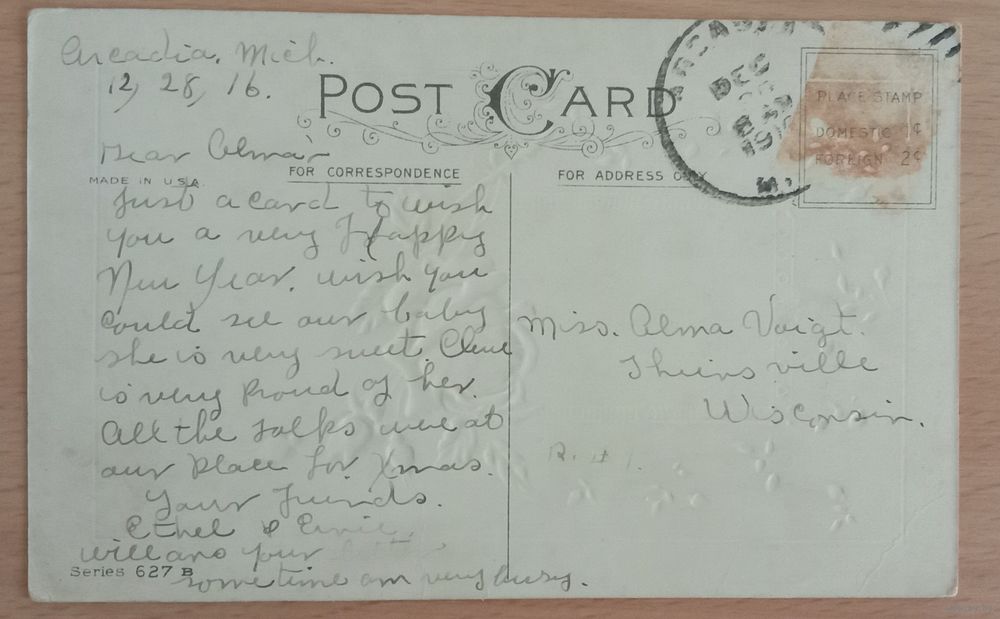 Arcadia, Mich.
12, 28, 16.
POST CARD
ARCADIA
DEC
M.
PLACE STAMP
DOMESTIC 1¢
FOREIGN 2¢
Dear Alma:-
MADE IN U.S.A.
FOR CORRESPONDENCE
FOR ADDRESS ONLY
Just a card to wish
you a very Happy
New Year. wish you
could see our baby
she is very sweet.
is very proud of her.
All the folks were at
our place for Xmas.
Your friends.
Ethel & Ernie
will ans your
sometime am very busy.
Series 627 B
Miss. Alma Voigt.
Thiensville
Wisconsin.
R. #1.